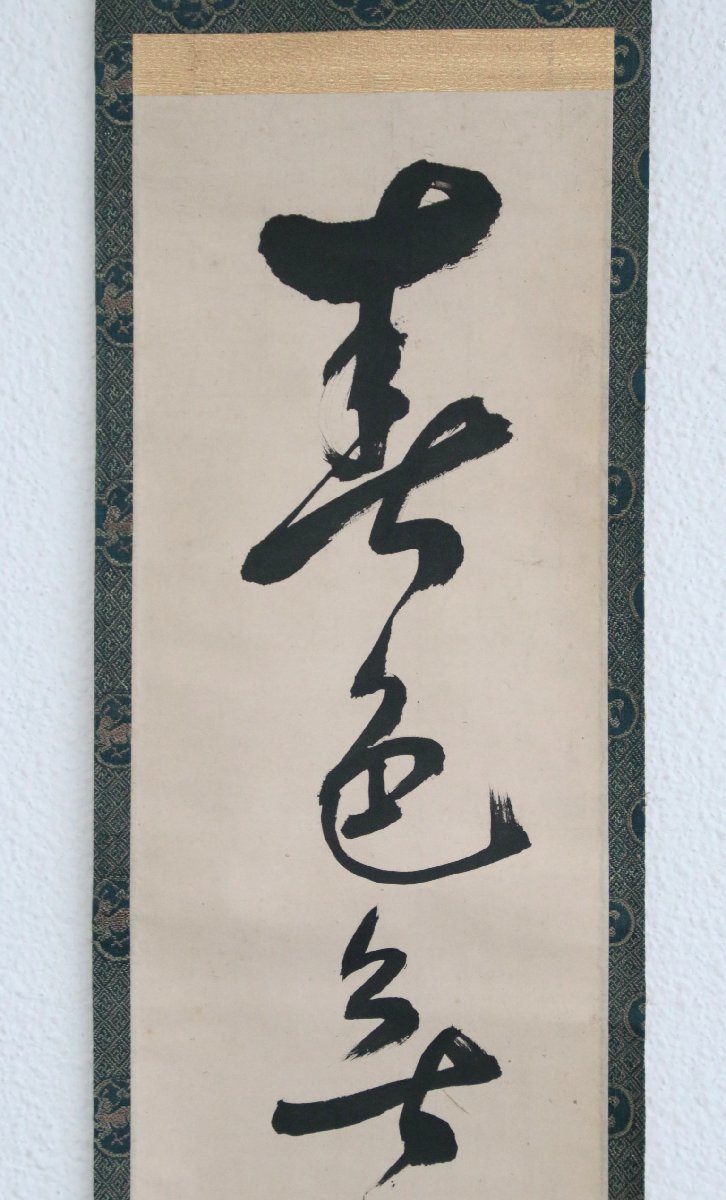 春色無